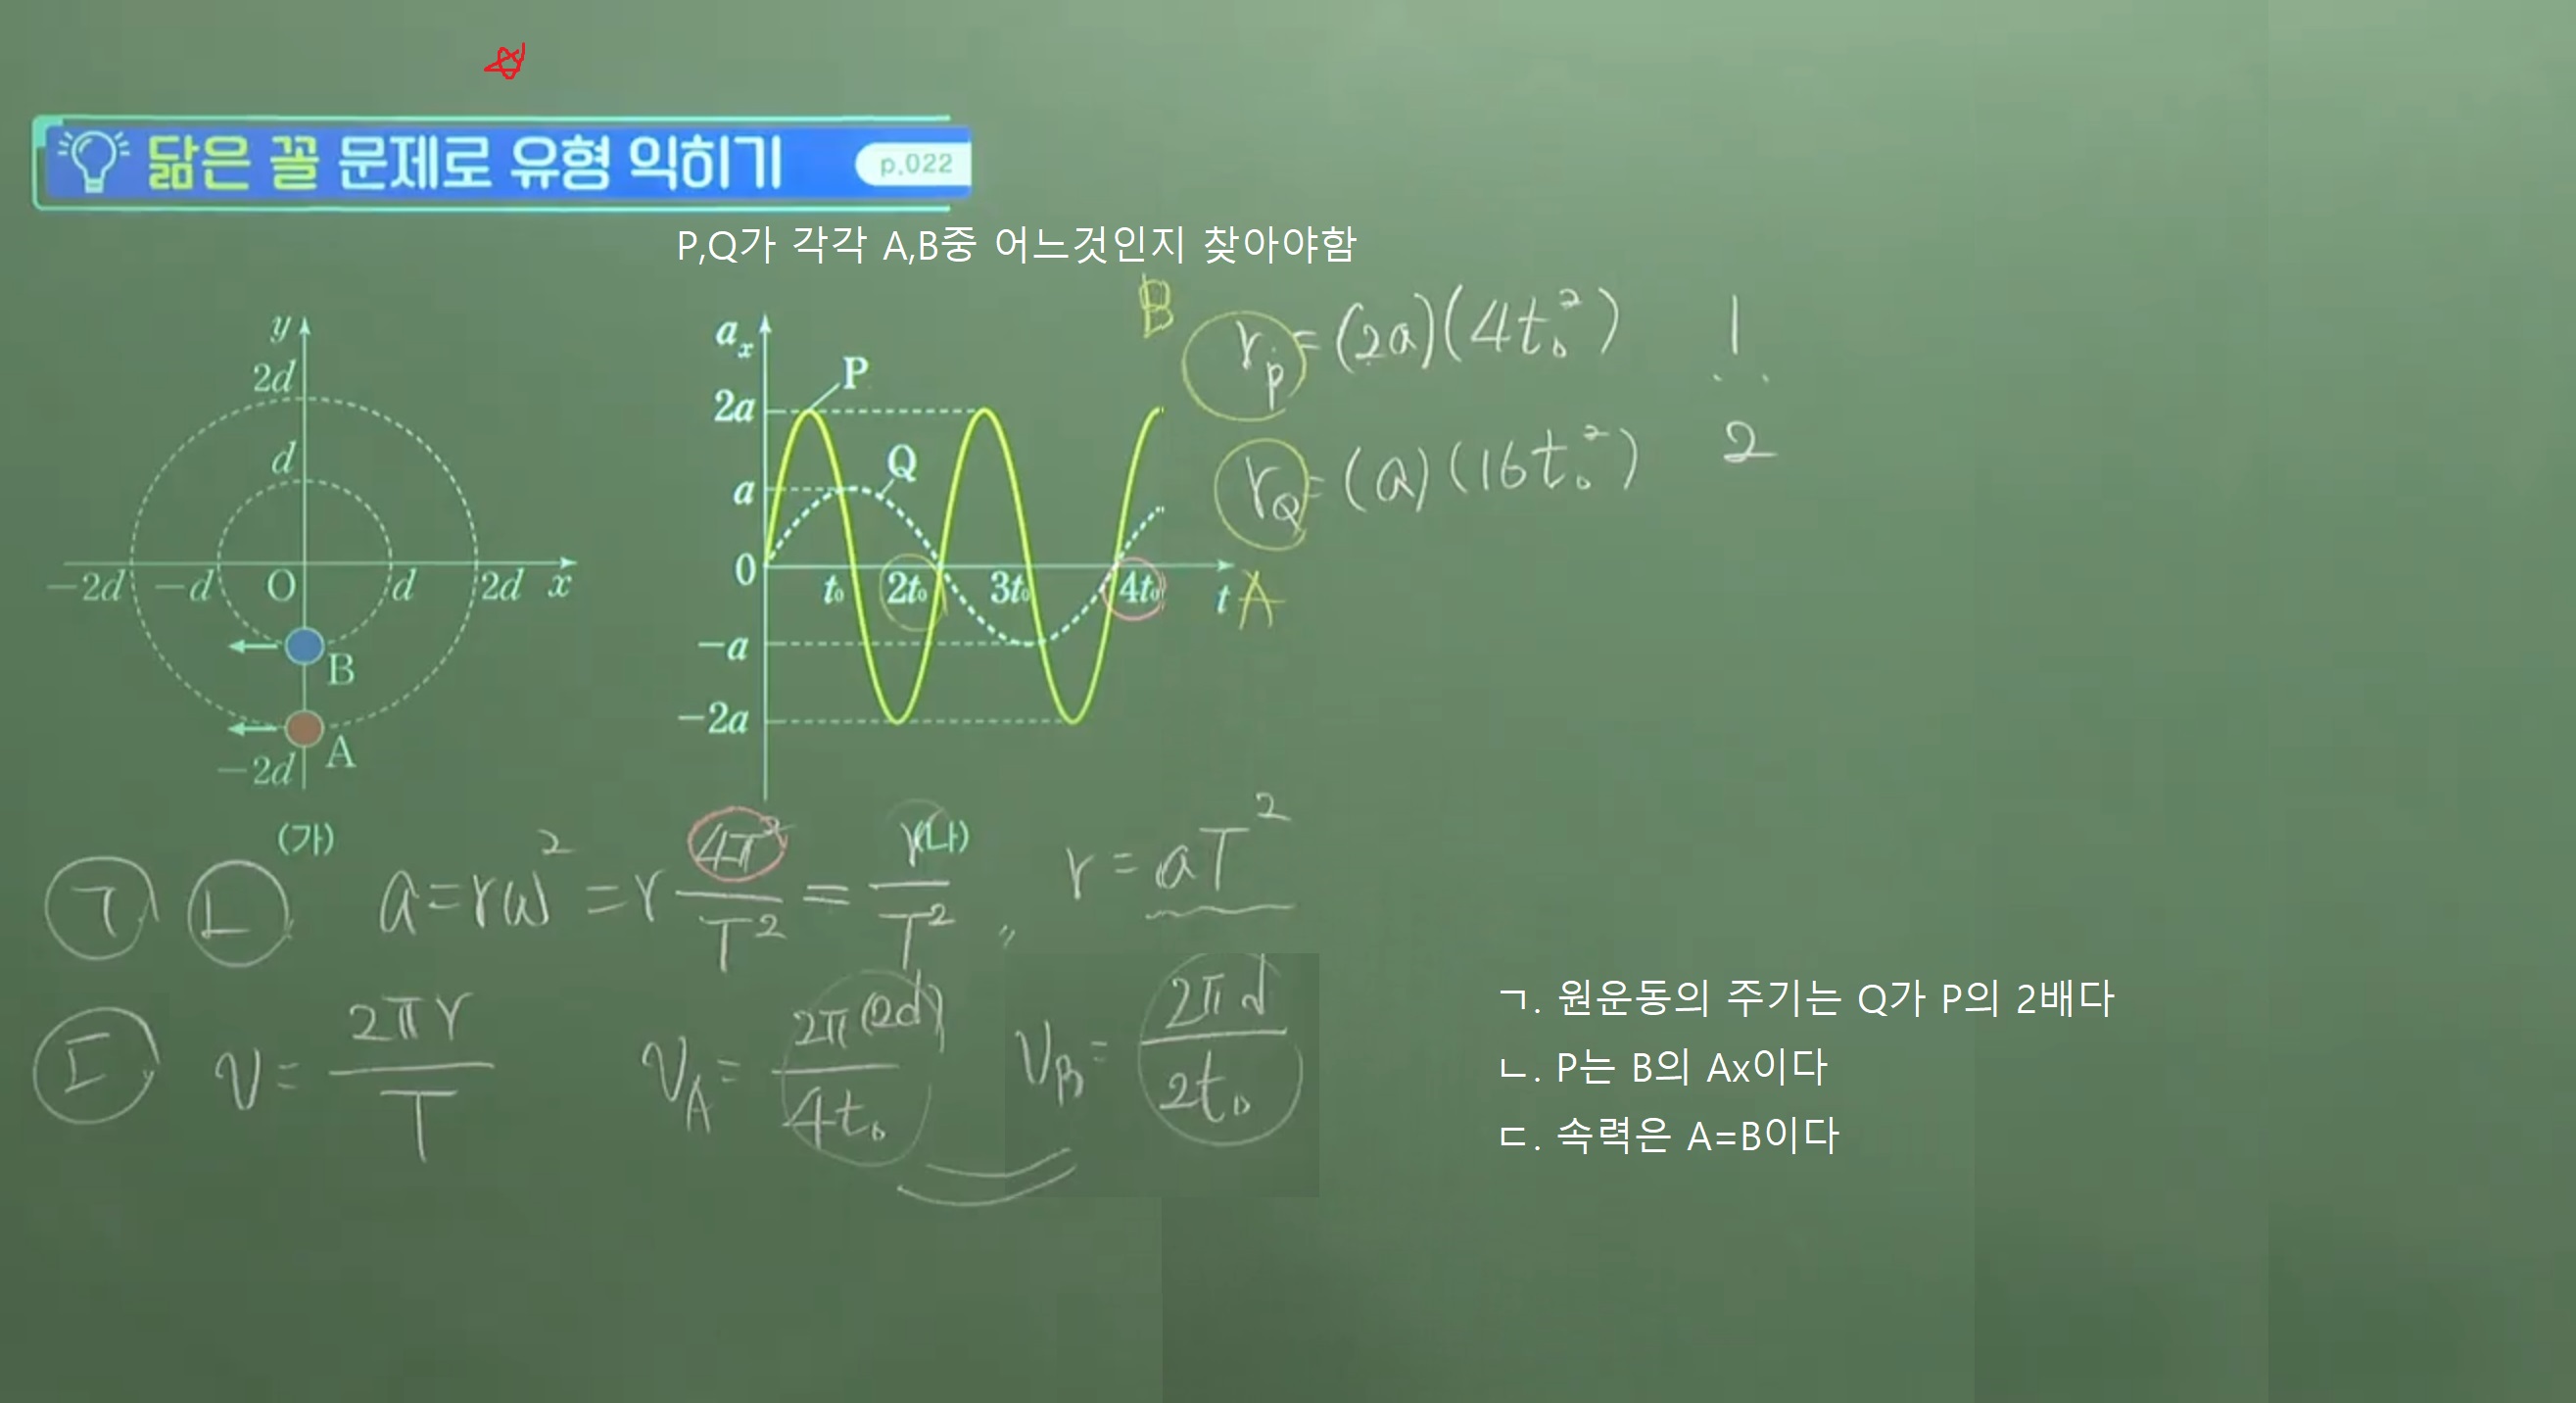 닮은 꼴 문제로 유형 익히기 p.022
P,Q가 각각 A,B중 어느것인지 찾아야함
y
2d
d
-2d -d O d 2d x
B
A
-2d
(가)
aₓ
2a
a
0
-a
-2a
P
Q
t₀ 2t₀ 3t₀ 4t₀ t
(나)
B
r_P = (2a)(4t₀²) 1
..
r_Q = (a)(16t₀²) 2
A
ㄱ ㄴ a = rω² = r 4π²/T² = r/T² r = aT²
ㄷ v = 2πr/T v_A = 2π(2d)/4t₀ v_B = 2πd/2t₀
ㄱ. 원운동의 주기는 Q가 P의 2배다
ㄴ. P는 B의 Ax이다
ㄷ. 속력은 A=B이다